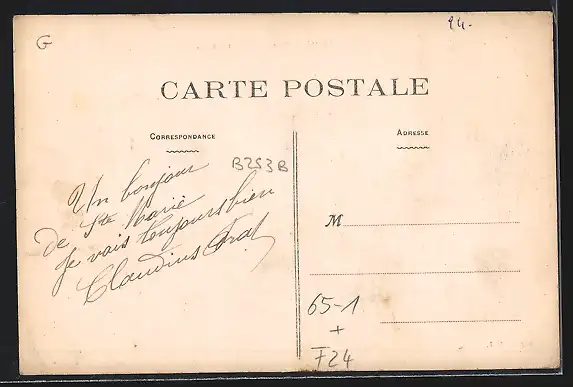 G
24.
CARTE POSTALE
CORRESPONDANCE
ADRESSE
B253B
Un bonjour
de Ste Marie
Je vais toujours bien
Claudius
M
65-1
+
F24